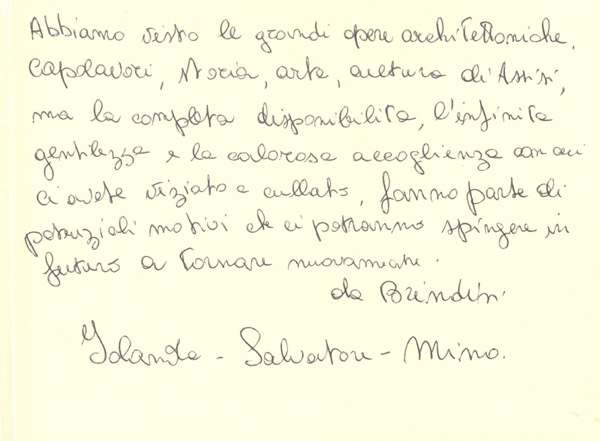 Abbiamo visto le grandi opere architettoniche,
capolavori, storia, arte, cultura di Assisi,
ma la completa disponibilità, l'infinita
gentilezza e la calorosa accoglienza con cui
ci avete viziato e cullato, fanno parte di
potenziali motivi che ci potranno spingere in
futuro a tornare nuovamente.
da Brindisi.
Iolanda - Salvatore - Mino.